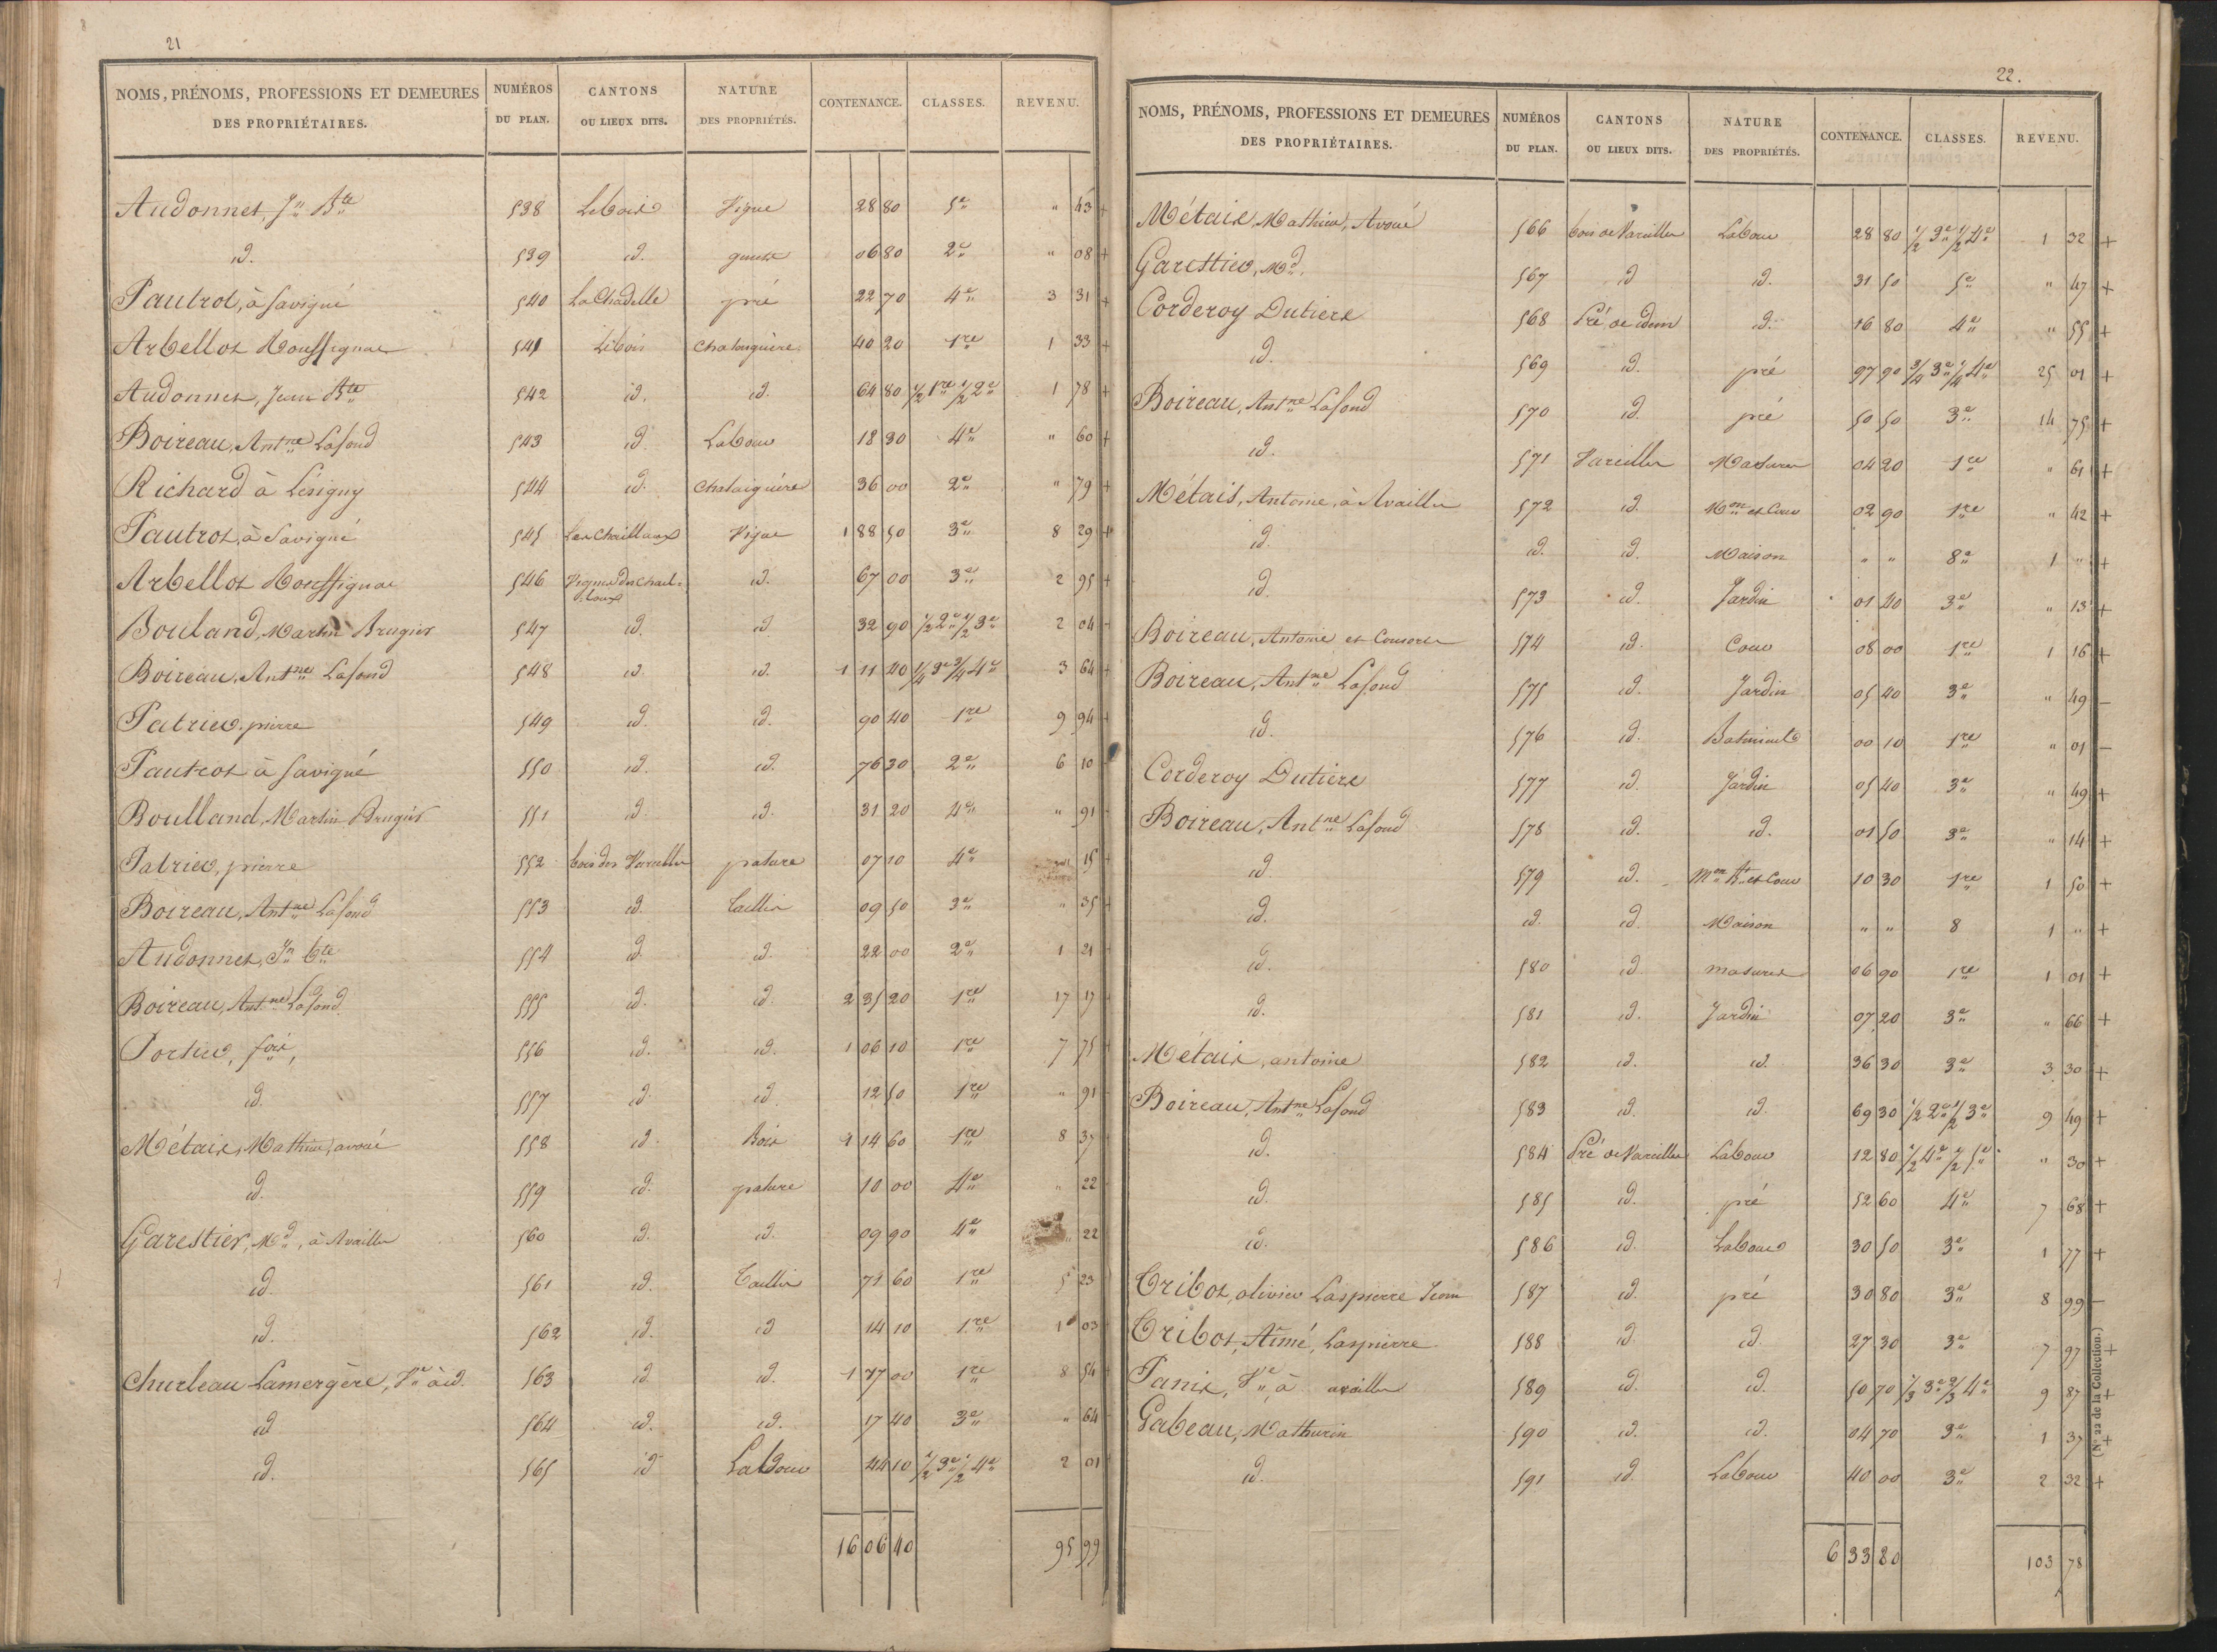 21
NOMS, PRÉNOMS, PROFESSIONS ET DEMEURES DES PROPRIÉTAIRES. NUMÉROS DU PLAN. CANTONS OU LIEUX DITS. NATURE DES PROPRIÉTÉS. CONTENANCE. CLASSES. REVENU.
Audonnet, Jn Bte 538 Le bois Vigne 28 80 5e " 43 +
id. 539 id. 06 80 2e " 08 +
Pautrot, à Savigné 540 La Chadelle pré 22 70 4e 3 31 +
Arbellot Rouffignac 541 Le bois Chataignière 40 20 1re 1 33 +
Audonnet, Jean Bte 542 id. id. 64 80 1/2 1re 1/2 2e 1 78 +
Boireau, Antne Lafond 543 id. Labour 18 30 4e " 60 +
Richard à Lésigny 544 id. Chataignière 36 00 2e " 79 +
Pautrot, à Savigné 545 Les Chaillaux Vigne 1 88 50 3e 8 29 +
Arbellot Rouffignac 546 Vignes des Chail-laux id. 67 00 3e 2 95 +
Bouland, Martin Brugier 547 id. id. 32 90 1/2 2e 1/2 3e 2 04
Boireau, Antne Lafond 548 id. id. 1 11 40 1/4 3e 3/4 4e 3 64 +
Patrier, pierre 549 id. id. 90 40 1re 9 94
Pautrot à Savigné 550 id. id. 76 30 2e 6 10
Boulland, Martin Brugier 551 id. id. 31 20 4e " 91
Patrier, pierre 552 bois des Vareilles pature 07 10 4e 15
Boireau, Antne Lafond 553 id. Taillis 09 50 3e " 35
Audonnet, Jn bte 554 id. id. 22 00 2e 1 21
Boireau, Antne Lafond 555 id. id. 2 35 20 1re 17 17
Portier, fois, 556 id. id. 1 06 10 1re 7 75
id. 557 id. id. 12 50 1re " 91
Métais, Mathieu, avoué 558 id. Bois 1 14 60 1re 8 37
id. 559 id. pature 10 00 4e " 22
Garestier, Md, à Availles 560 id. id. 09 90 4e 22
id. 561 id. Taillis 71 60 1re 5 23
id. 562 id. id 14 10 1re 1 03
Churleau Lamergère, Ve à id. 563 id. id. 1 17 00 1re 8 54
id 564 id. id. 17 40 3e " 64
id. 565 id Labour 44 10 1/2 3e 1/2 4e 2 01
16 06 40 95 99
22.
NOMS, PRÉNOMS, PROFESSIONS ET DEMEURES DES PROPRIÉTAIRES. NUMÉROS DU PLAN. CANTONS OU LIEUX DITS. NATURE DES PROPRIÉTÉS. CONTENANCE. CLASSES. REVENU.
Métais, Mathieu, Avoué 566 bois de Vareilles Labour 28 80 1/2 3e 1/2 4e 1 32 +
Garestier, Md. 567 id id. 31 50 5e " 47 +
Corderoy Dutiers 568 Pré de idem id. 16 80 4e " 55 +
id. 569 id. pré 97 90 3/4 3e 1/4 4e 25 01 +
Boireau, Antne Lafond 570 id. pré 50 50 3e 14 75 +
id. 571 Vareilles Masures 04 20 1re " 61 +
Métais, Antoine, à Availles 572 id. Mon et Cour 02 90 1re " 42 +
id. id. id. Maison " " 8e 1 " +
id. 573 id. Jardin 01 40 3e " 13 +
Boireau, Antoine et Consorts 574 id. Cour 08 00 1re 1 16 +
Boireau, Antne Lafond 575 id. Jardin 05 40 3e " 49 –
id. 576 id. Batiments 00 10 1re " 01 –
Corderoy Dutiers 577 id. Jardin 05 40 3e " 49 +
Boireau, Antne Lafond 578 id. id. 01 50 3e " 14 +
id. 579 id. Mon Bt et Cour 10 30 1re 1 50 +
id. id. id. Maison " " 8 1 " +
id. 580 id. masures 06 90 1re 1 01 +
id. 581 id. Jardin 07 20 3e " 66 +
Métais, antoine 582 id. id. 36 30 3e 3 30 +
Boireau, Antne Lafond 583 id. id. 69 30 1/2 2e 1/2 3e 9 49 +
id. 584 Pré de Vareilles Labour 12 80 1/2 4e 1/2 5e " 30 +
id. 585 id. pré 52 60 4e 7 68 +
id. 586 id. Labour 30 50 3e 1 77 +
Tribot, olivier Laspierre 587 id. pré 30 80 3e 8 99 –
Tribot, Aimé, Laspierre 588 id. id. 27 30 3e 7 97 +
Panis, Ve à availles 589 id. id. 50 70 1/3 3e 2/3 4e 9 87 +
Gabeau, Mathurin 590 id. id. 04 70 3e 1 37 +
id. 591 id. Labour 40 00 3e 2 32 +
6 33 80 103 78
(N° 22 de la Collection.)